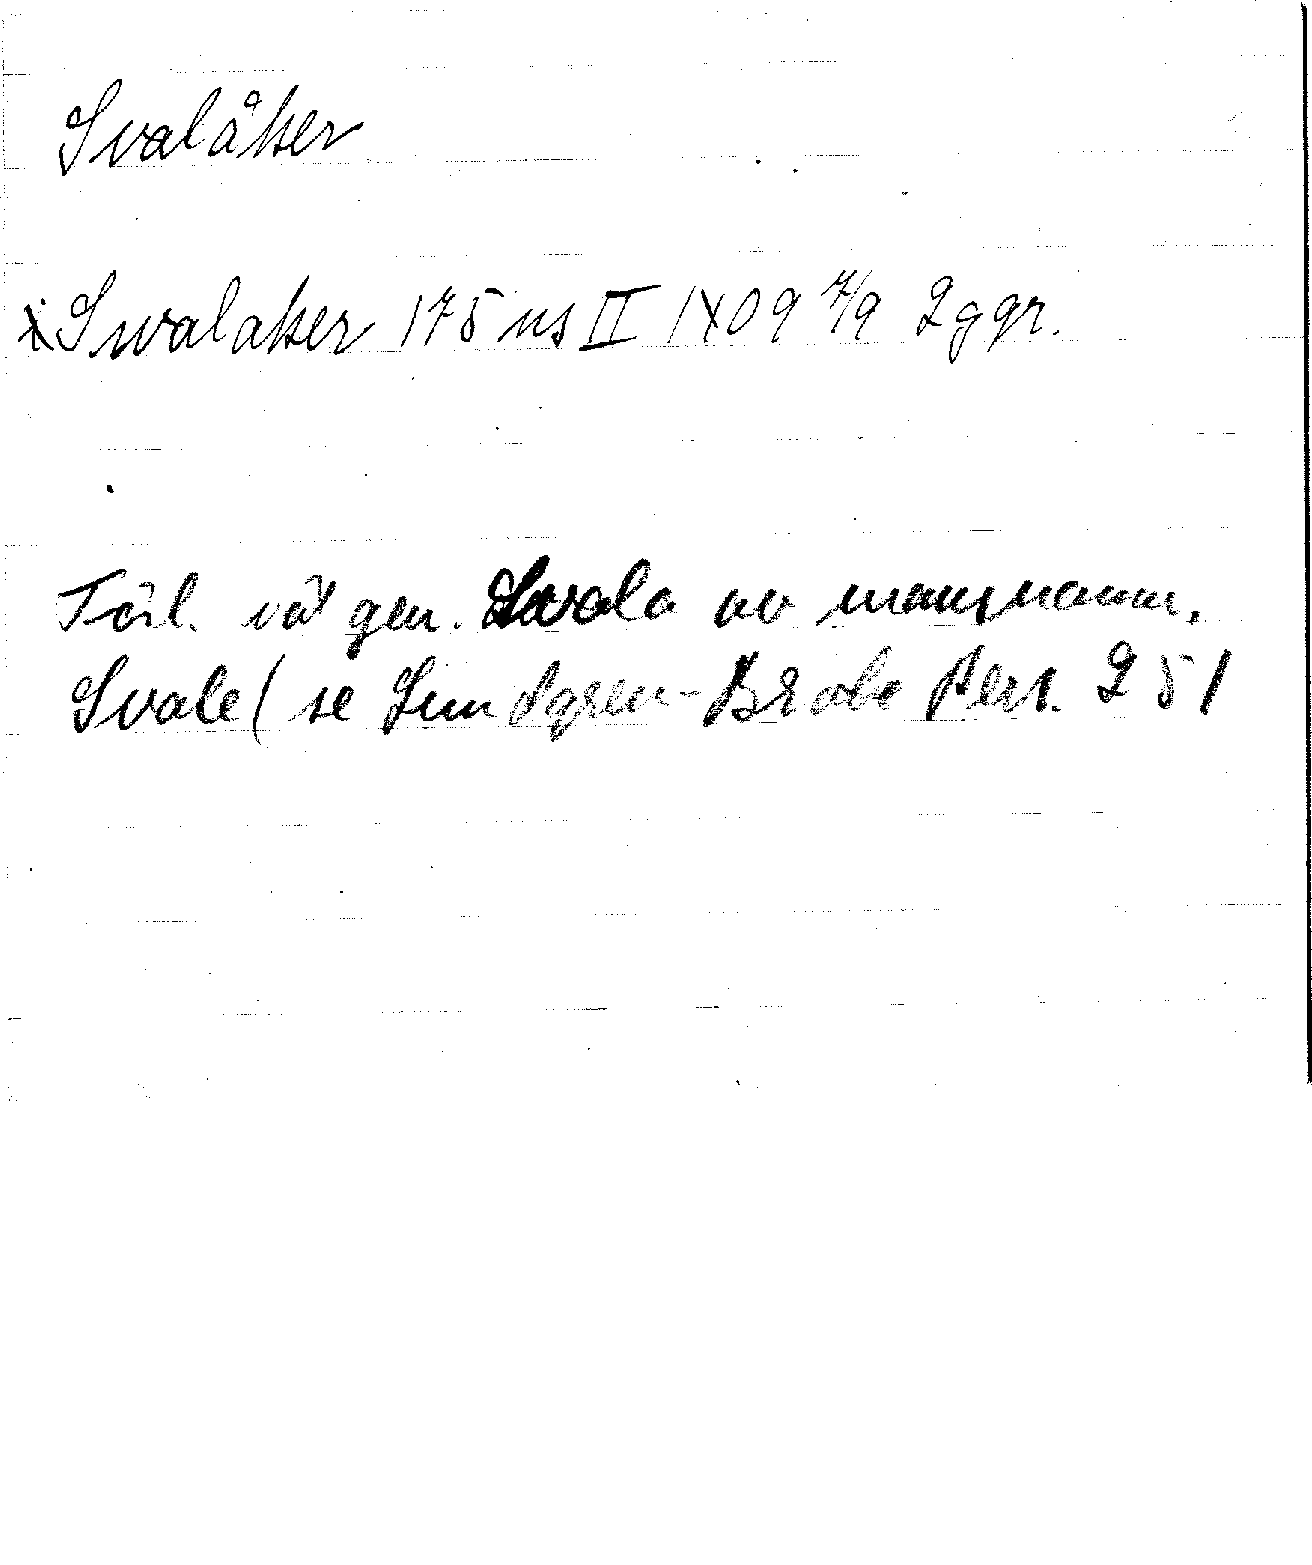 Svalåker
i Swalaker 175 ns II 1409 7/9 2 ggr.
Förl. väl gen. Svala av mansnamn.
Svale (se Lundgren-Brate Pers. 251